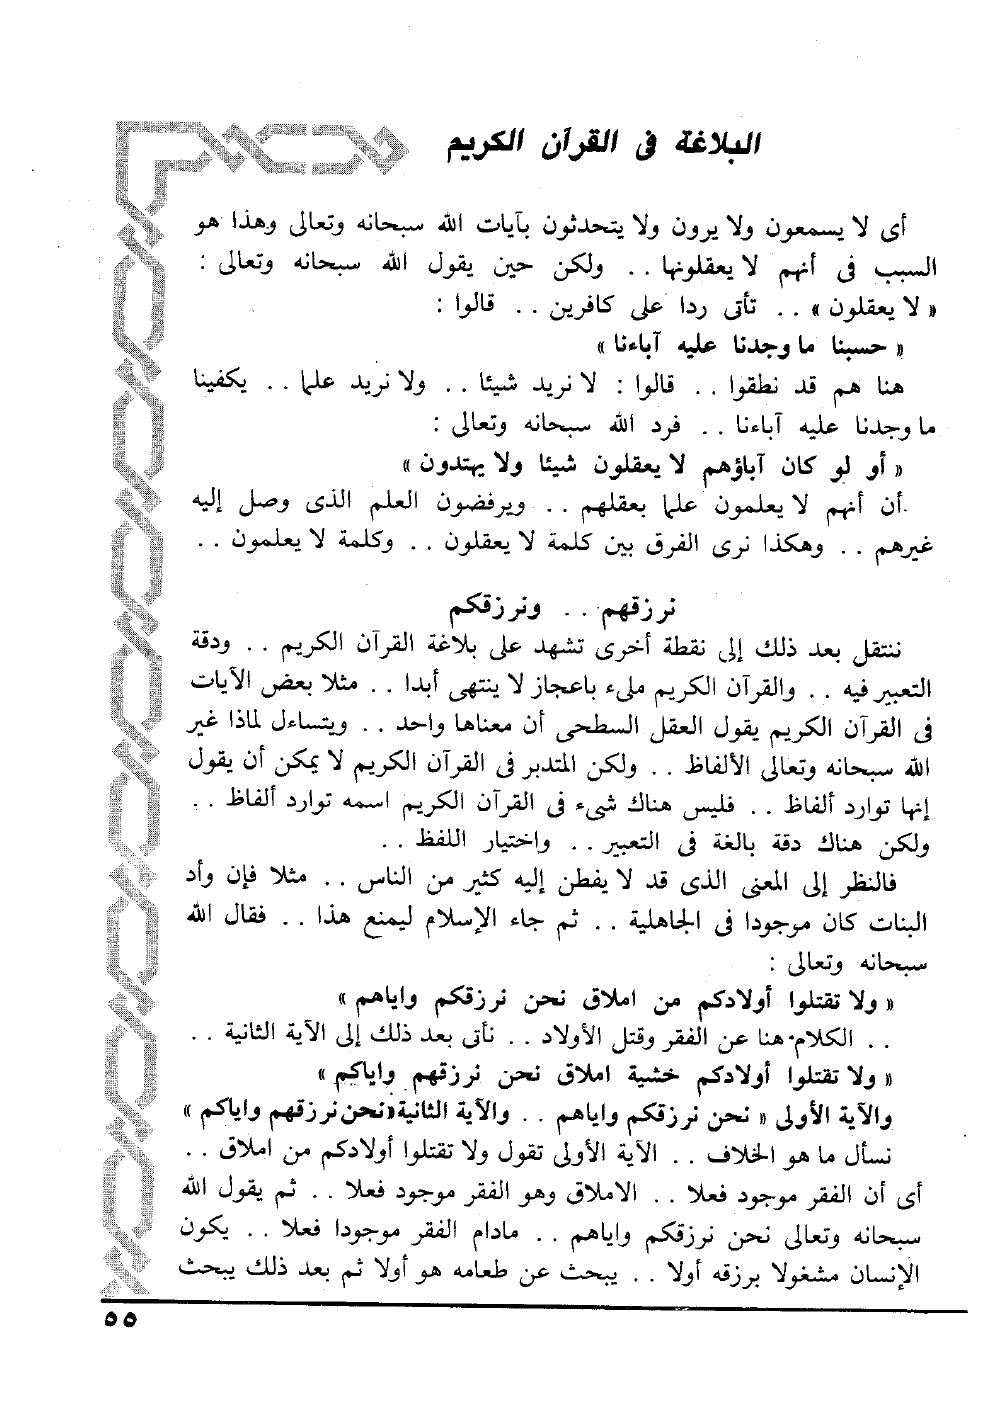 البلاغة فى القرآن الكريم
أى لا يسمعون ولا يرون ولا يتحدثون بآيات الله سبحانه وتعالى وهذا هو
السبب فى أنهم لا يعقلونها .. ولكن حين يقول الله سبحانه وتعالى :
« لا يعقلون » .. تأتى ردا على كافرين .. قالوا :
« حسبنا ما وجدنا عليه آباءنا »
هنا هم قد نطقوا .. قالوا : لا نريد شيئا .. ولا نريد علما .. يكفينا
ما وجدنا عليه آباءنا .. فرد الله سبحانه وتعالى :
« أو لو كان آباؤهم لا يعقلون شيئا ولا يهتدون »
أن أنهم لا يعلمون علما بعقلهم .. ويرفضون العلم الذى وصل إليه
غيرهم .. وهكذا نرى الفرق بين كلمة لا يعقلون .. وكلمة لا يعلمون ..
نرزقهم .. ونرزقكم
ننتقل بعد ذلك إلى نقطة أخرى تشهد على بلاغة القرآن الكريم .. ودقة
التعبير فيه .. والقرآن الكريم ملىء باعجاز لا ينتهى أبدا .. مثلا بعض الآيات
فى القرآن الكريم يقول العقل السطحى أن معناها واحد .. ويتساءل لماذا غير
الله سبحانه وتعالى الألفاظ .. ولكن المتدبر فى القرآن الكريم لا يمكن أن يقول
إنها توارد ألفاظ .. فليس هناك شىء فى القرآن الكريم اسمه توارد ألفاظ ..
ولكن هناك دقة بالغة فى التعبير .. واختيار اللفظ ..
فالنظر إلى المعنى الذى قد لا يفطن إليه كثير من الناس .. مثلا فإن وأد
البنات كان موجودا فى الجاهلية .. ثم جاء الإسلام ليمنع هذا .. فقال الله
سبحانه وتعالى :
« ولا تقتلوا أولادكم من املاق نحن نرزقكم واياهم »
.. الكلام هنا عن الفقر وقتل الأولاد .. نأتى بعد ذلك إلى الآية الثانية ..
« ولا تقتلوا أولادكم خشية املاق نحن نرزقهم واياكم »
والآية الأولى « نحن نرزقكم واياهم .. والآية الثانية «نحن نرزقهم واياكم »
نسأل ما هو الخلاف .. الآية الأولى تقول ولا تقتلوا أولادكم من املاق ..
أى أن الفقر موجود فعلا .. الاملاق وهو الفقر موجود فعلا .. ثم يقول الله
سبحانه وتعالى نحن نرزقكم واياهم .. مادام الفقر موجودا فعلا .. يكون
الإنسان مشغولا برزقه أولا .. يبحث عن طعامه هو أولا ثم بعد ذلك يبحث
٥٥